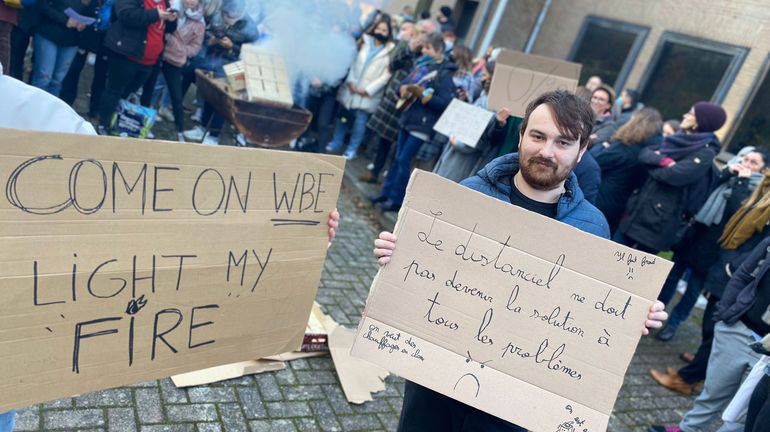 COME ON WBE
LIGHT MY
FIRE
Le distanciel ne doit
pas devenir la solution à
tous les problèmes.
il fait froid
on veut des
chauffages en class